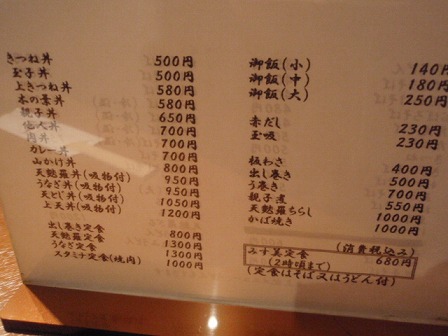 きつね丼 500円
玉子丼 500円
上きつね丼 580円
木の葉丼 580円
親子丼 650円
他人丼 700円
肉丼 700円
カレー丼 700円
山かけ丼 800円
天麩羅丼(吸物付) 950円
うなぎ丼(吸物付) 950円
天とじ丼(吸物付) 1050円
上天丼(吸物付) 1200円
出し巻き定食 800円
天麩羅定食 1300円
うなぎ定食 1300円
スタミナ定食(焼肉) 1000円
御飯(小) 140円
御飯(中) 180円
御飯(大) 250円
赤だし 230円
玉吸 230円
板わさ 400円
出し巻き 500円
う巻き 700円
親子煮 550円
天麩羅ちらし 1000円
かば焼き 1000円
(消費税込み)
みす美定食 680円
(2時頃まで)
(定食はそば又はうどん付)